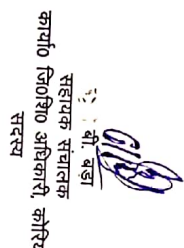 बी. बड़ा
सहायक संचालक
कार्या० जि०शि० अधिकारी, कोरि
सदस्य